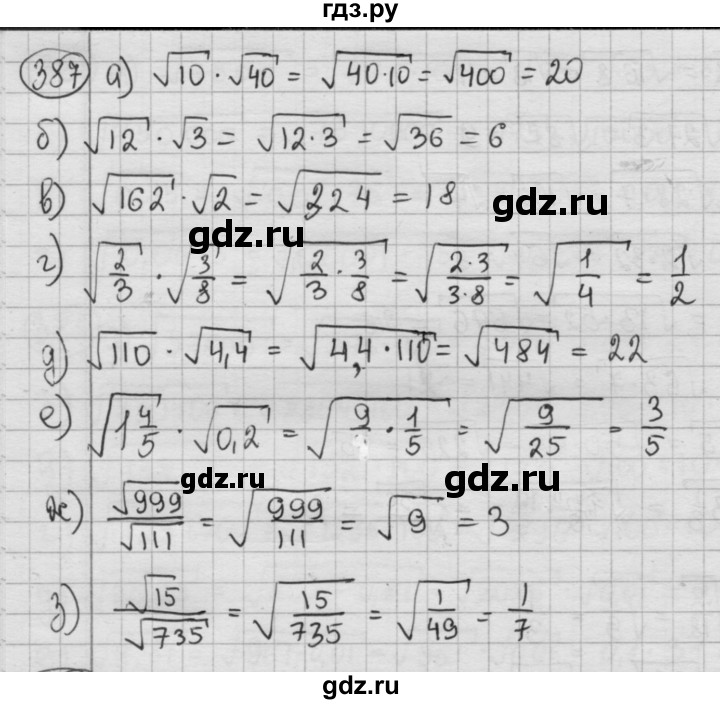 гдз.ру
387 а) √10 · √40 = √40·10 = √400 = 20
б) √12 · √3 = √12·3 = √36 = 6
в) √162 · √2 = √324 = 18
gdz.ru
gdz.ru
г) √2/3 · √3/8 = √2/3 · 3/8 = √2·3/3·8 = √1/4 = 1/2
д) √110 · √4,4 = √4,4·110 = √484 = 22
е) √1 4/5 · √0,2 = √9/ · 1/5 = √9/25 = 3/5
gdz.ru
gdz.ru
ж) √999/√111 = √999/111 = √9 = 3
з) √15/√735 = √15/735 = √1/49 = 1/7
gdz.ru